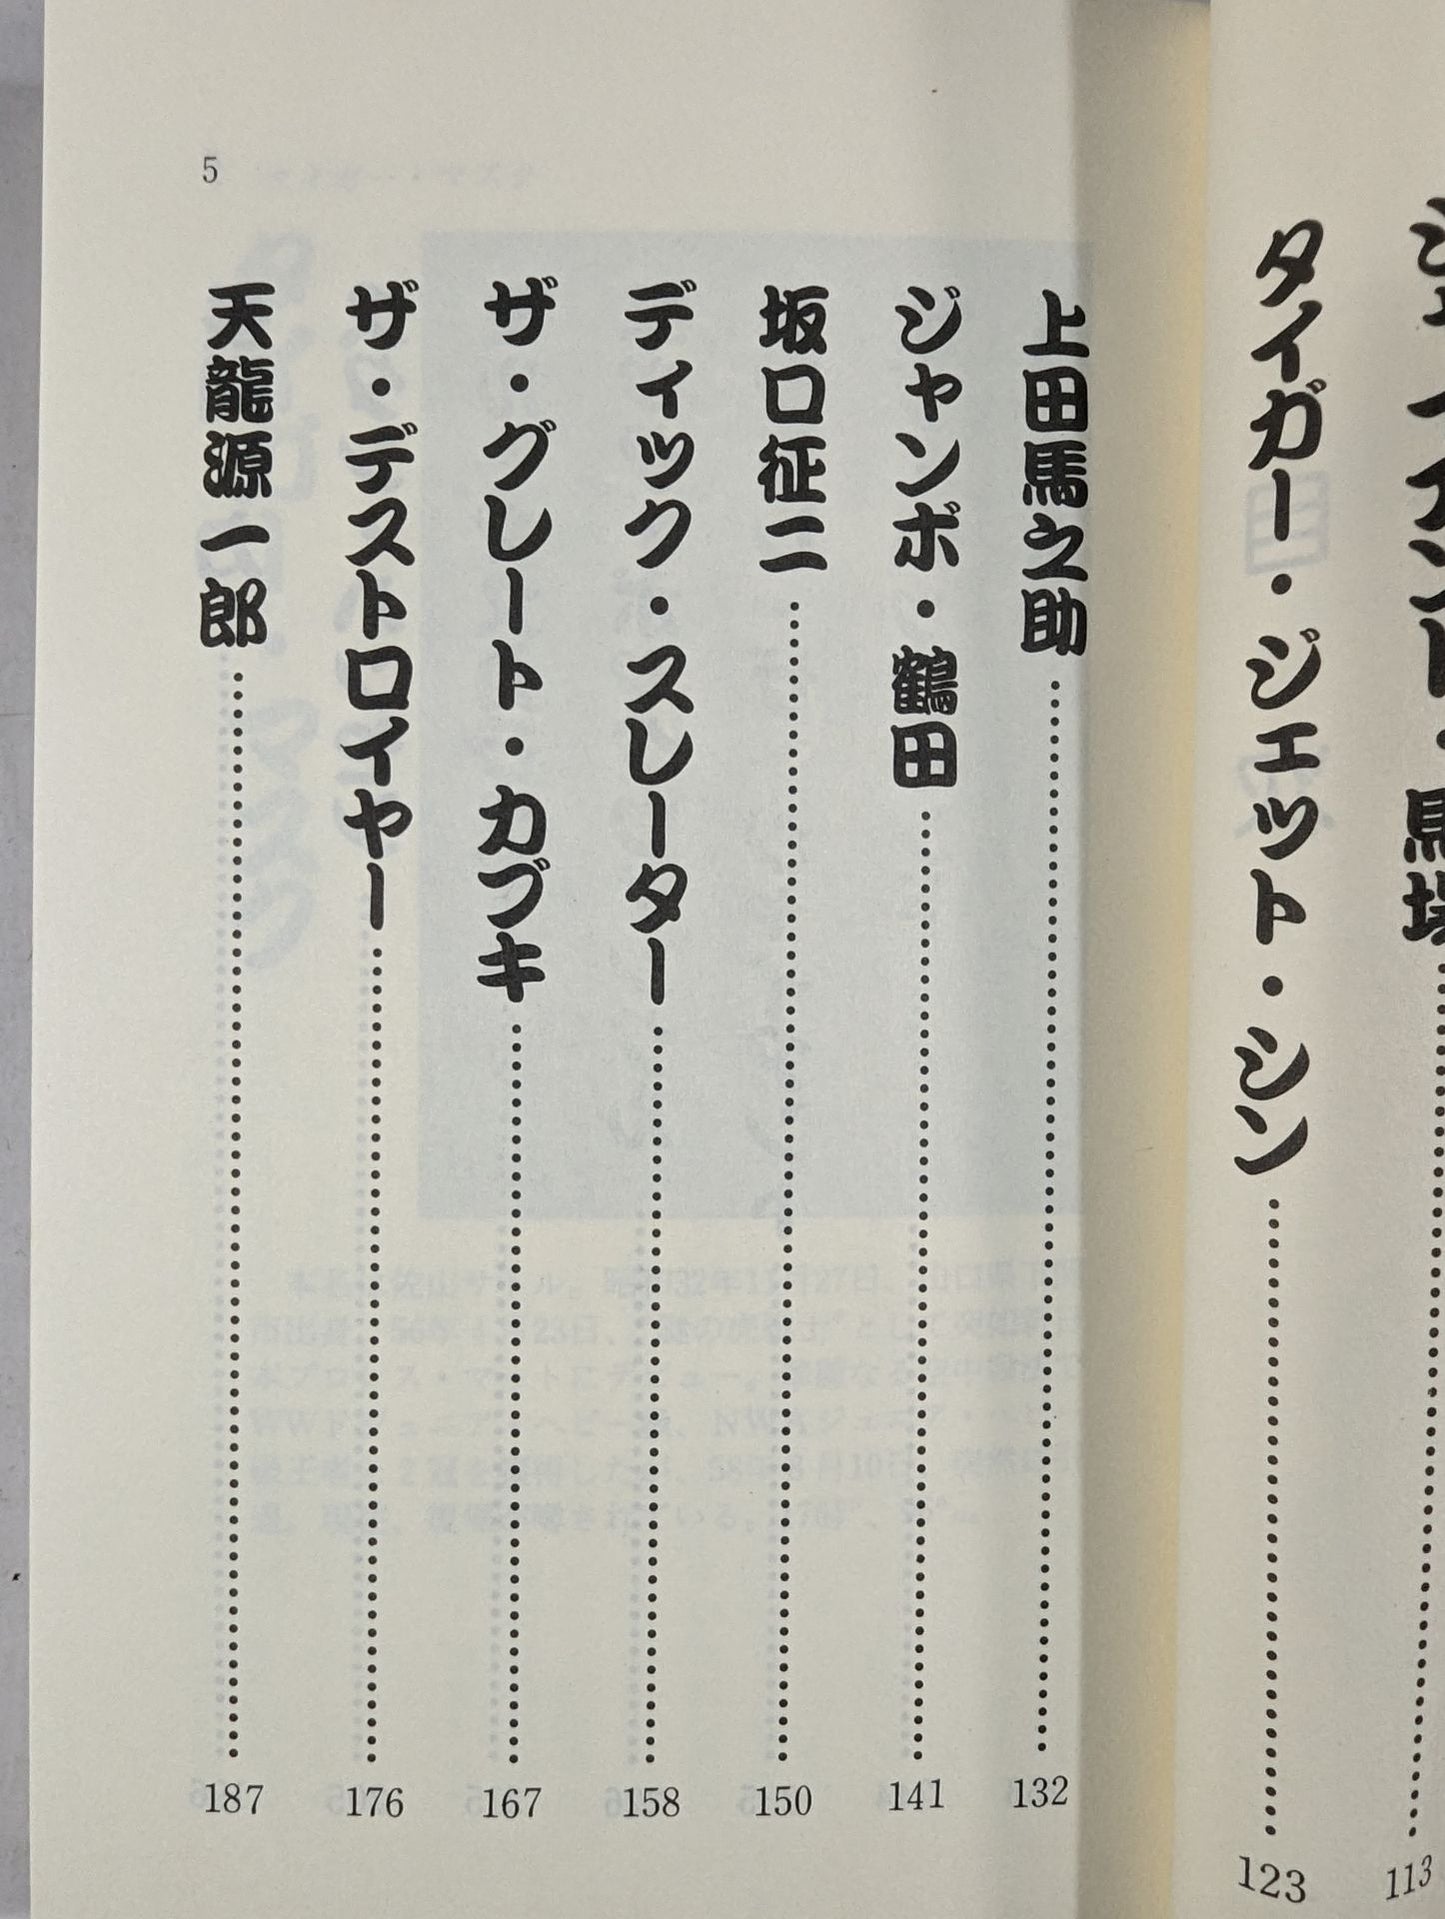 ジャイアント・馬場……113
タイガー・ジェット・シン……123
5
上田馬之助……132
ジャンボ・鶴田……141
坂口征二……150
ディック・スレーター……158
ザ・グレート・カブキ……167
ザ・デストロイヤー……176
天龍源一郎……187